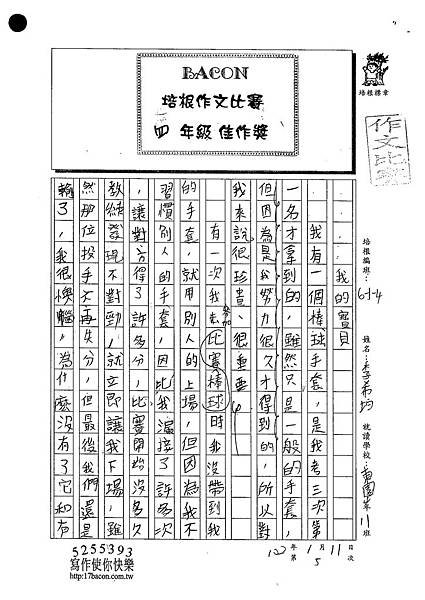 BACON
培根作文比賽
四 年級 佳作獎
培根標章
作文比
培根編班：6J-4
姓名：李希均
就讀學校：
年11班
102年1月11日
第5次
我的寶貝
我有一個棒球手套，是我考三次第
一名才拿到的，雖然只是一般的手套，
但因為是我努力很久才得到的，所以對
我來說很珍貴、很重要。
有一次我去參加比賽棒球時我沒帶到我
的手套，就用別人的上場，但因為不
習慣別人的手套，因此我漏接了許多次
，讓對方得了許多分，比賽開始沒多久
教練發現不對勁，就立即讓我下場，雖
然那位投手不再失分，但最後我們還是
輸了，我很懊惱，為什麼沒有了它和有
5255393
寫作使你快樂
http://www.17bacon.com.tw